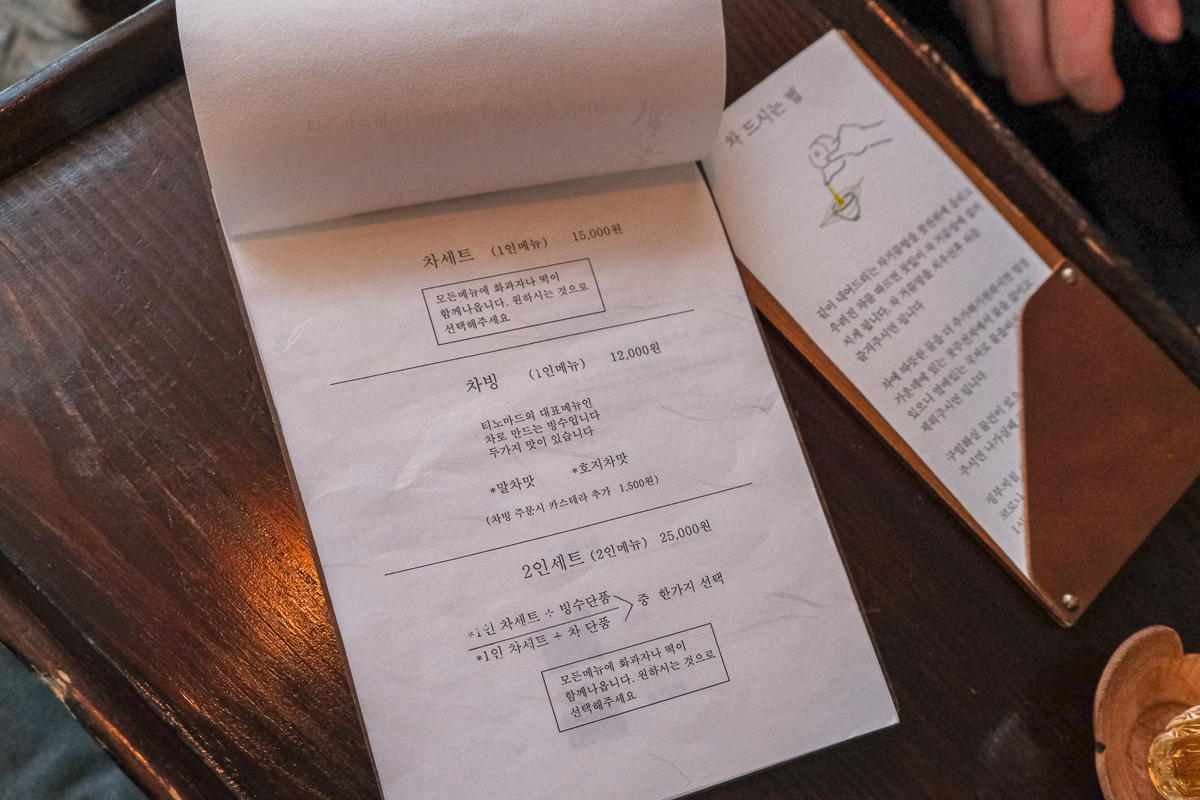 차세트 (1인메뉴) 15,000원
모든메뉴에 화과자나 떡이
함께나옵니다. 원하시는 것으로
선택해주세요
차빙 (1인메뉴) 12,000원
티노마드의 대표메뉴인
차로 만드는 빙수입니다
두가지 맛이 있습니다
*말차맛 *호지차맛
(차빙 주문시 카스테라 추가 1,500원)
2인세트 (2인메뉴) 25,000원
*1인 차세트 + 빙수단품
*1인 차세트 + 차 단품
중 한가지 선택
모든메뉴에 화과자나 떡이
함께나옵니다. 원하시는 것으로
선택해주세요
차 드시는 법
같이 내어드리는 차거름망을
우려진 차를 따르면
지게 됩니다. 차 거름망을
즐겨주시면 됩니다
차에 따뜻한 물을 더
가운데에 있는
있으니 옆에있는
채워주시면 됩니다
주시면